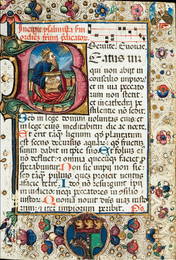 Incipit psalmista
Venite. Euouae
Eatus vir
qui non abiit in
consilio impior
et in via peccato
rum non stetit
et in cathedra pe
stilentie nō sedit
Sed in lege domini voluntas eius et
in lege eius meditabitur die ac nocte
Et erit tāq̄ lignum plantatum
est secus decursus aquarū: qd fructū
suum dabit in tpre suo Et folium ei
non defluet: et omnia quecūq̄ faciet p
sperabuntur Non sic impii non sic:
sed tāq̄ pulvis quem proicit ventus
a facie terre Ideo nō resurgunt ipii
in iudicio: neq̄ peccatores in cōsilio
iustorū Quoniā novit dns viam iusto
rum: et iter impiorum peribit